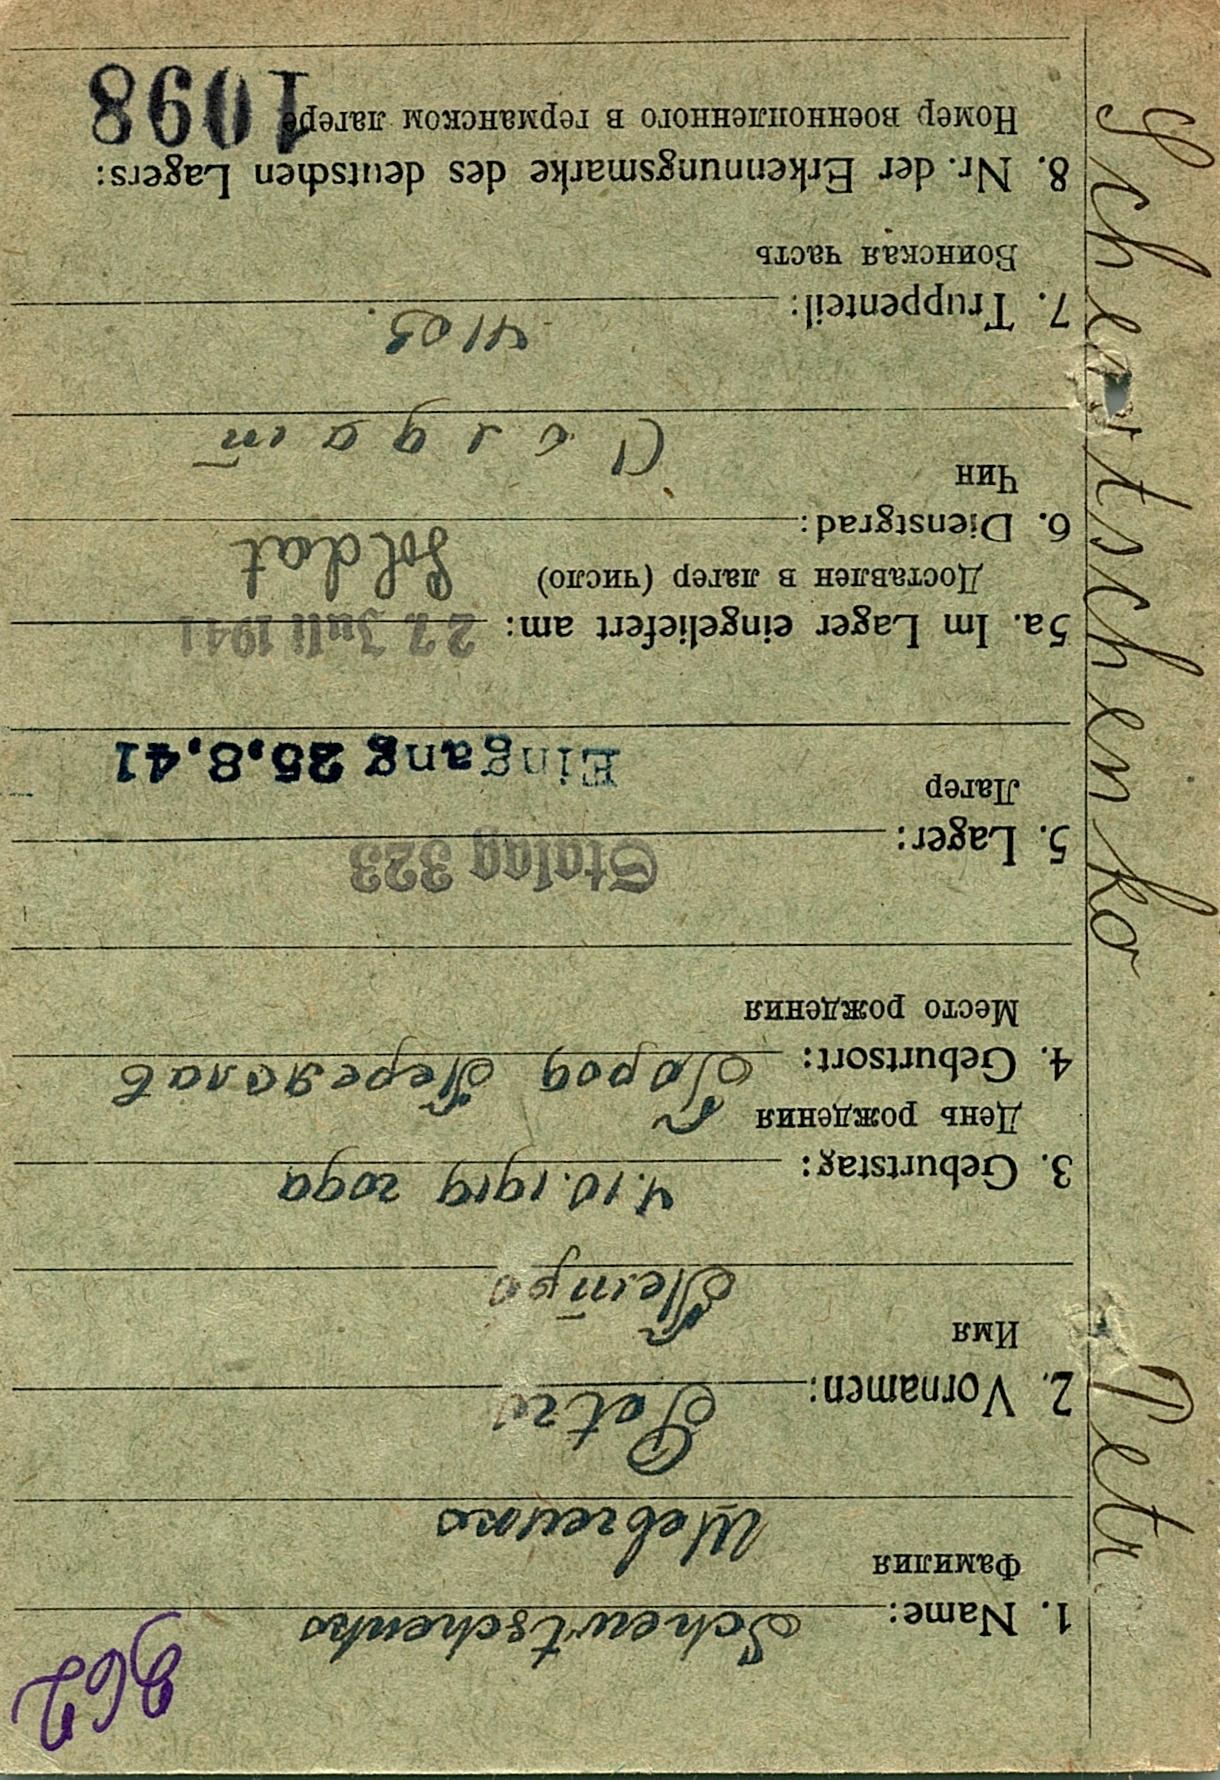 962
1. Name: Schewtschenko
Фамилия
Шевченко
2. Vornamen: Petro
Имя
Петро
3. Geburtstag: 4.10.1919 года
День рождения
4. Geburtsort: Город Переяслав
Место рождения
5. Lager: Stalag 323
Лагер
Eingang 25.8.41
5a. Im Lager eingeliefert am: 27. Juli 1941
Доставлен в лагер (число)
Soldat
6. Dienstgrad:
Чин
Солдат
7. Truppenteil: 4103.
Воинская часть
8. Nr. der Erkennungsmarke des deutschen Lagers:
Номер военнопленного в германском лагере
1098
Schewtschenko Petr.